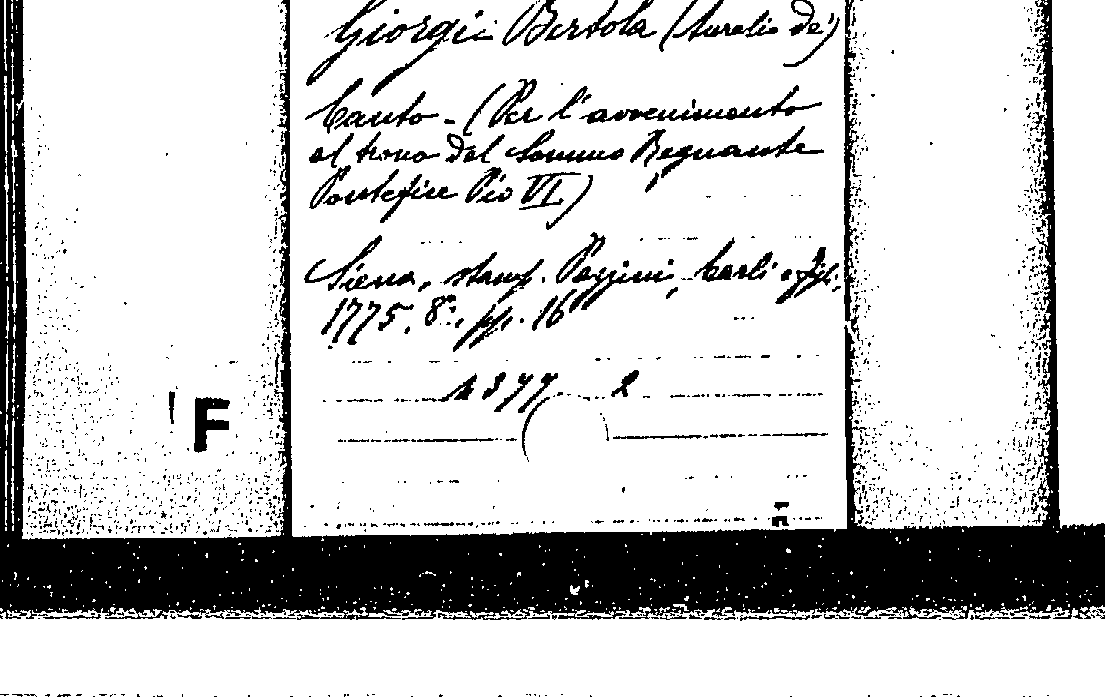 Giorgi Bertola (Aurelio de')
Canto - (Per l'avvenimento
al trono del Sommo Regnante
Pontefice Pio VI)
Siena, stamp. Pazzini, Carli e figli,
1775, 8°, pp. 16
4377 2
F